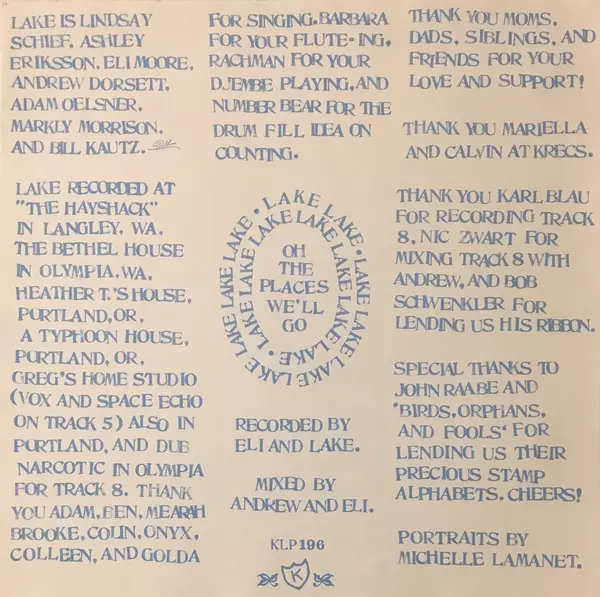 LAKE IS LINDSAY
SCHIEF, ASHLEY
ERIKSSON, ELI MOORE,
ANDREW DORSETT,
ADAM OELSNER,
MARKLY MORRISON,
AND BILL KAUTZ.
LAKE RECORDED AT
"THE HAYSHACK"
IN LANGLEY, WA,
THE BETHEL HOUSE
IN OLYMPIA, WA,
HEATHER T.'S HOUSE,
PORTLAND, OR,
A TYPHOON HOUSE,
PORTLAND, OR,
GREG'S HOME STUDIO
(VOX AND SPACE ECHO
ON TRACK 5) ALSO IN
PORTLAND, AND DUB
NARCOTIC IN OLYMPIA
FOR TRACK 8. THANK
YOU ADAM, BEN, MEARAH
BROOKE, COLIN, ONYX,
COLLEEN, AND GOLDA
FOR SINGING. BARBARA
FOR YOUR FLUTE-ING,
RACHMAN FOR YOUR
DJEMBE PLAYING, AND
NUMBER BEAR FOR THE
DRUM FILL IDEA ON
COUNTING.
LAKE LAKE • LAKE LAKE LAKE LAKE LAKE LAKE LAKE LAKE •
LAKE LAKE LAKE LAKE LAKE LAKE • LAKE LAKE
OH
THE
PLACES
WE'LL
GO
RECORDED BY
ELI AND LAKE.
MIXED BY
ANDREW AND ELI.
KLP196
K
THANK YOU MOMS,
DADS, SIBLINGS, AND
FRIENDS FOR YOUR
LOVE AND SUPPORT!
THANK YOU MARIELLA
AND CALVIN AT KRECS.
THANK YOU KARL BLAU
FOR RECORDING TRACK
8, NIC ZWART FOR
MIXING TRACK 8 WITH
ANDREW, AND BOB
SCHWENKLER FOR
LENDING US HIS RIBBON.
SPECIAL THANKS TO
JOHN RAABE AND
'BIRDS, ORPHANS,
AND FOOLS' FOR
LENDING US THEIR
PRECIOUS STAMP
ALPHABETS. CHEERS!
PORTRAITS BY
MICHELLE LAMANET.